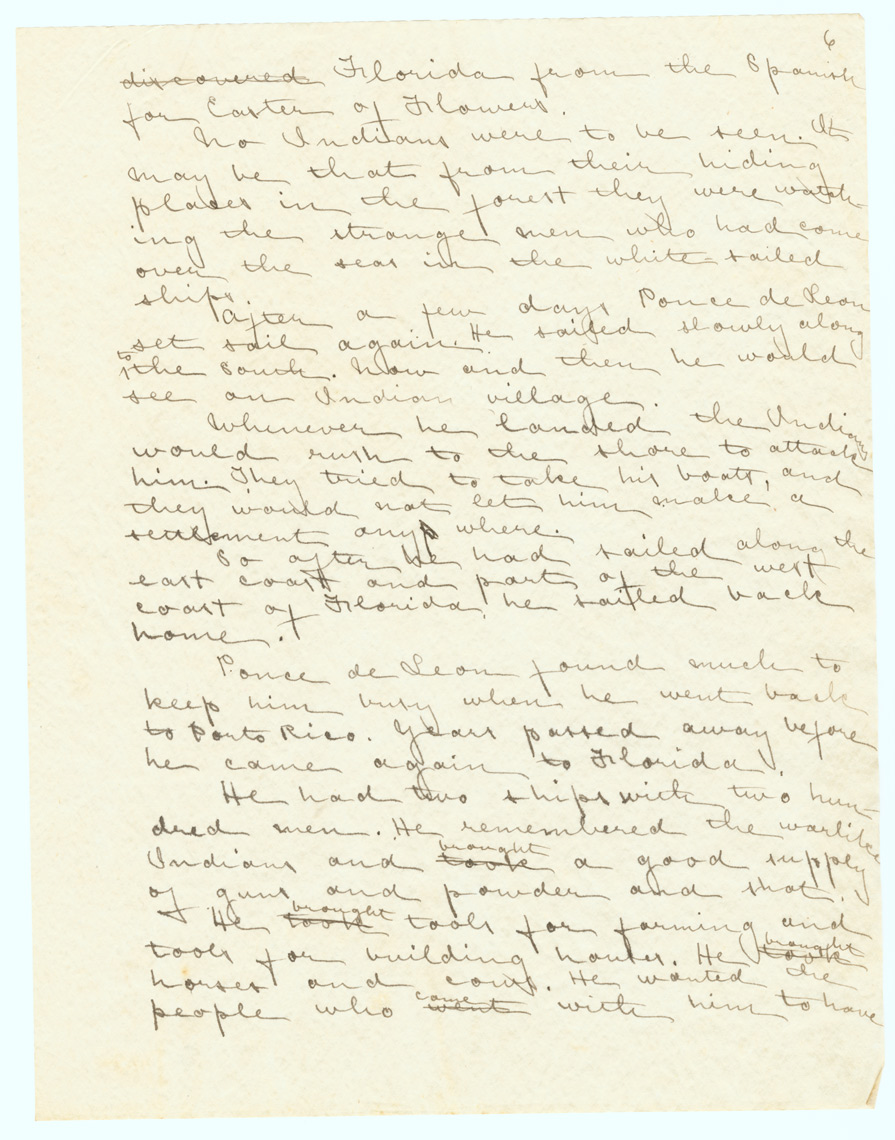 6
discovered Florida from the Spanish
for Easter of Flowers.
No Indians were to be seen. It
may be that from their hiding
places in the forest they were watch-
ing the strange men who had come
over the seas in the white-sailed
ships.
After a few days Ponce de Leon
set sail again. He sailed slowly along
to
the South. Now and then he would
see an Indian village.
Whenever he landed the Indians
would rush to the shore to attack
him. They tried to take his boats, and
they would not let him make a
settlement any where.
So after he had sailed along the
east coast and part of the west
coast of Florida, he sailed back
home.
Ponce de Leon found much to
keep him busy when he went back
to Porto Rico. Years passed away before
he came again to Florida.
He had two ships with two hun-
dred men. He remembered the warlike
brought
Indians and took a good supply
of guns and powder and shot.
brought
He took tools for farming and
brought
tools for building houses. He took
horses and cows. He wanted the
came
people who went with him to have